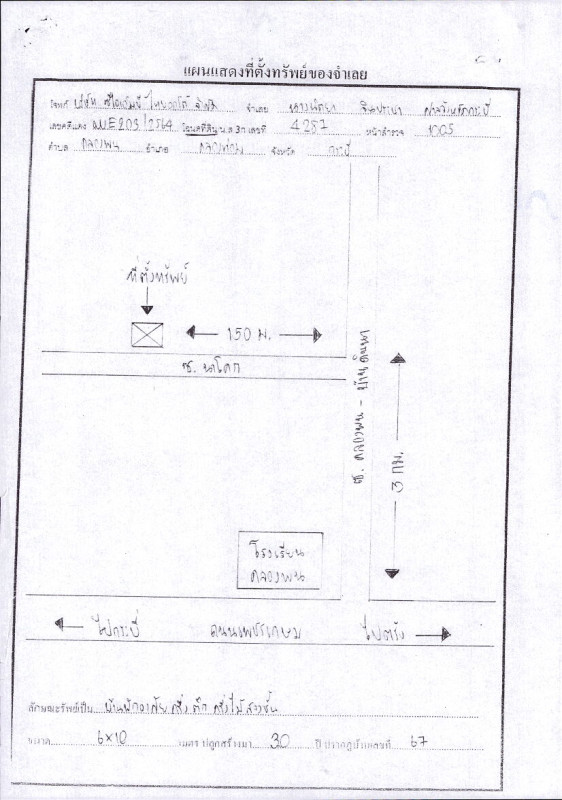 แผนแสดงที่ตั้งทรัพย์ของจำเลย
โจทก์ จำเลย ศาลจังหวัดกระบี่
เลขคดีแดง ผบE203/2564 โฉนดที่ดิน/น.ส 3ก เลขที่ 4287 หน้าสำรวจ 1005
ตำบล คลองพน อำเภอ คลองท่อม จังหวัด กระบี่
ที่ตั้งทรัพย์
150 ม.
ซ. นาโคก
ซ. คลองพน - บ้านดินนา
3 กม.
โรงเรียน
คลองพน
ไปกระบี่ ถนนเพชรเกษม ไปตรัง
ลักษณะทรัพย์เป็น บ้านพักอาศัย ครึ่งตึก ครึ่งไม้ สองชั้น
ขนาด 6x10 เมตร ปลูกสร้างมา 30 ปี ปรากฏบ้านเลขที่ 67